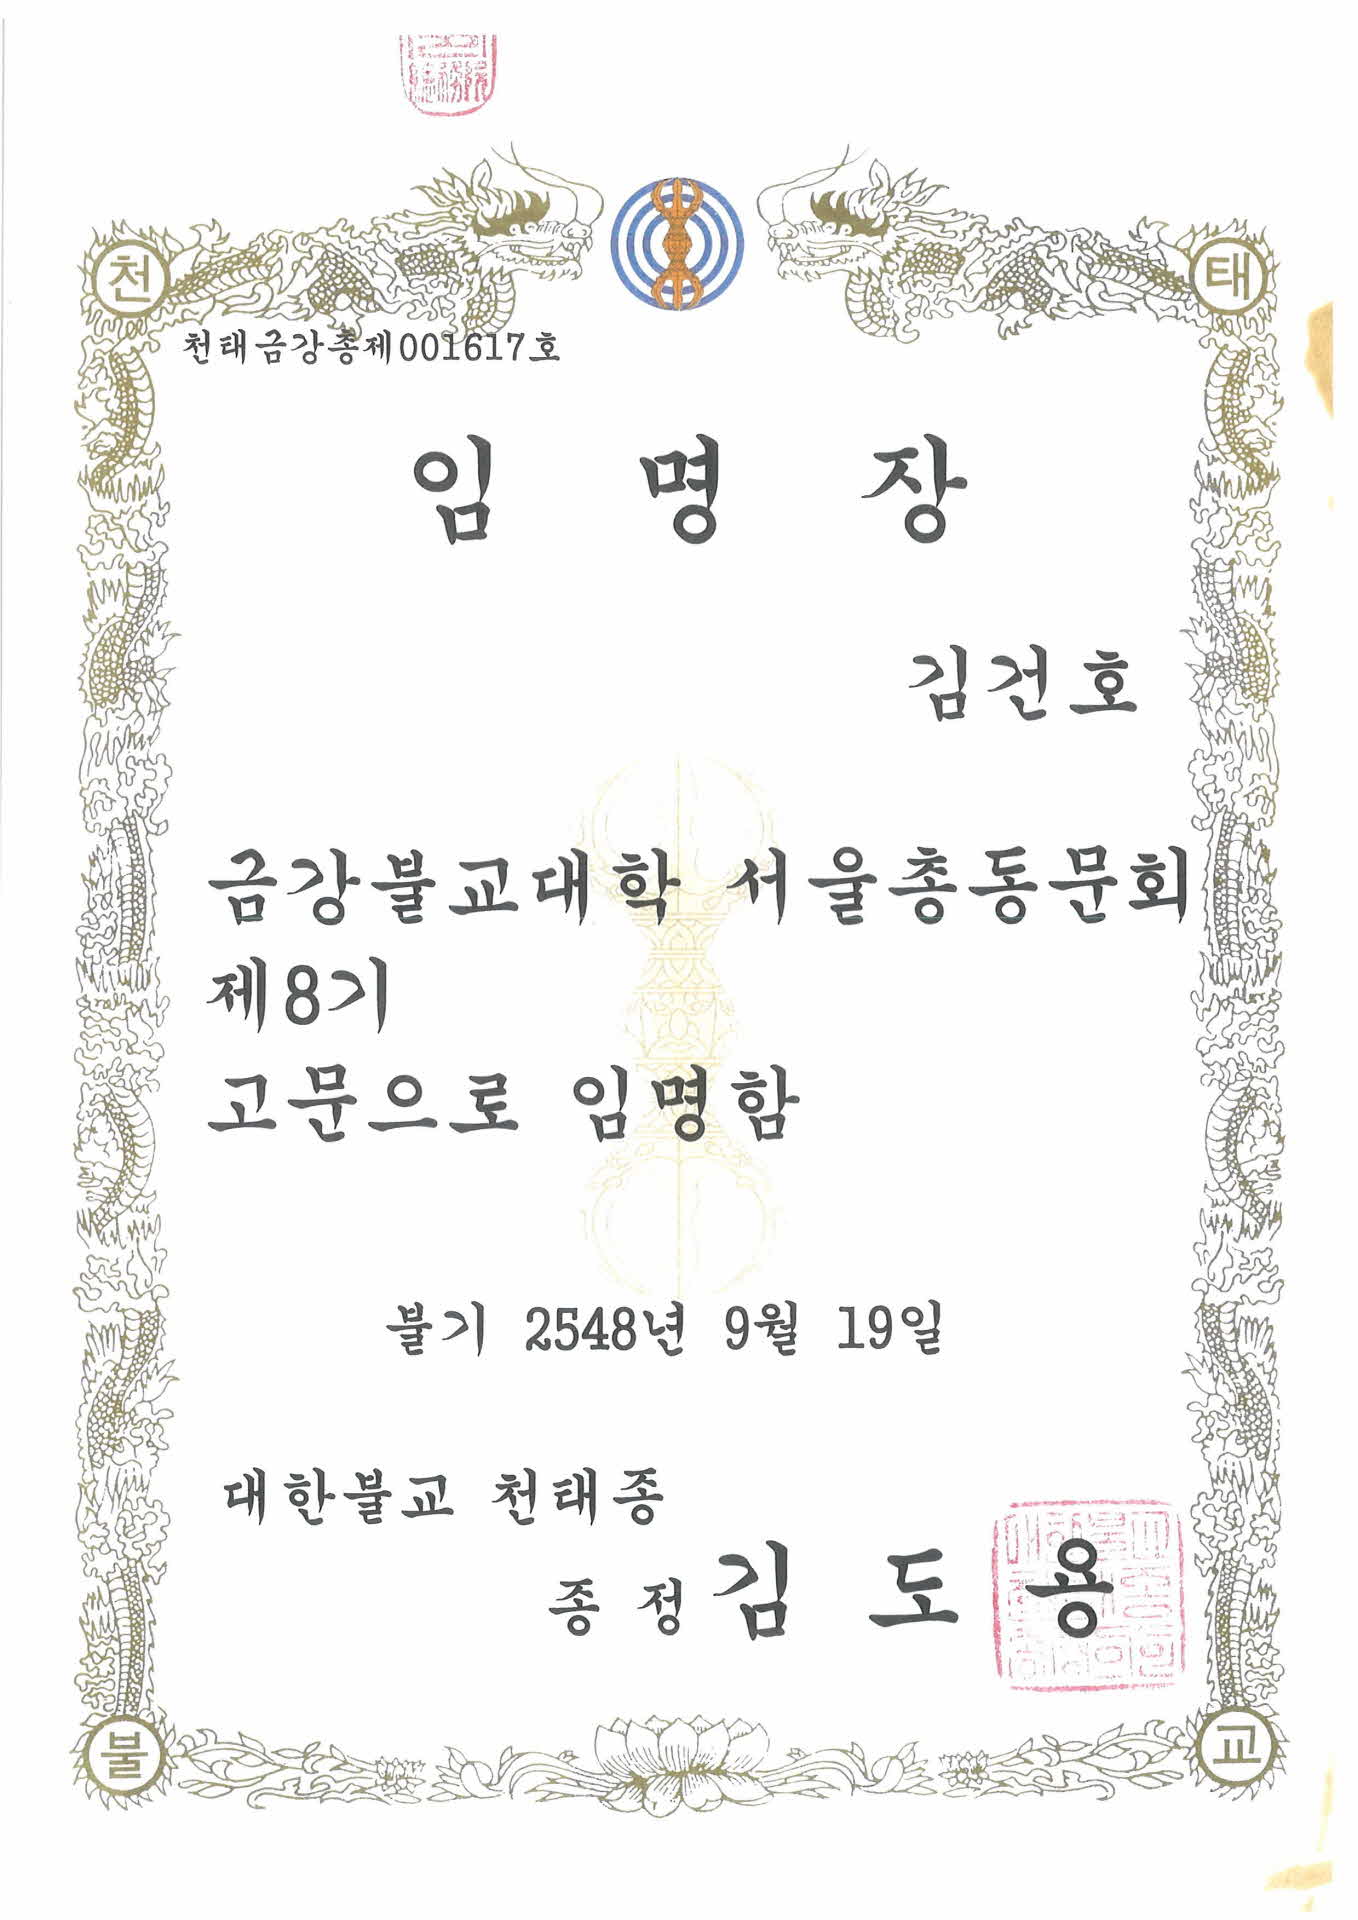 천 태
천태금강총제001617호
임 명 장
김건호
금강불교대학 서울총동문회
제8기
고문으로 임명함
불기 2548년 9월 19일
대한불교 천태종
종정 김 도 용
불 교